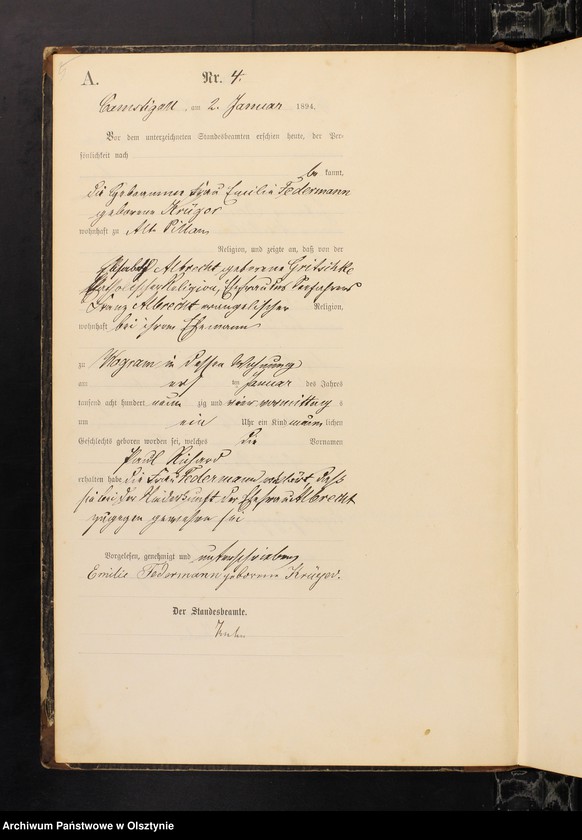 A. Nr. 4.
Camstigall, am 2. Januar 1894.
Vor dem unterzeichneten Standesbeamten erschien heute, der Per-
sönlichkeit nach
be kannt,
die Hebeamme Frau Emilie Federmann
geborene Krüger
wohnhaft zu Alt Pillau
Religion, und zeigte an, daß von der
Albrecht geborene Gritschke
Religion, Ehefrau des
Franz Albrecht evangelischer Religion,
wohnhaft bei ihrem Ehemann
zu Wogram in dessen Wohnung
am ersten Januar des Jahres
tausend acht hundert neun zig und vier vormittag s
um ein Uhr ein Kind männ lichen
Geschlechts geboren worden sei, welches die Vornamen
Paul Richard
erhalten habe. Die Frau Federmann erklärt, daß
sie bei der Niederkunft der Ehefrau Albrecht
zugegen gewesen sei
Vorgelesen, genehmigt und unterschrieben
Emilie Federmann geborene Krüger.
Der Standesbeamte.
Archiwum Państwowe w Olsztynie